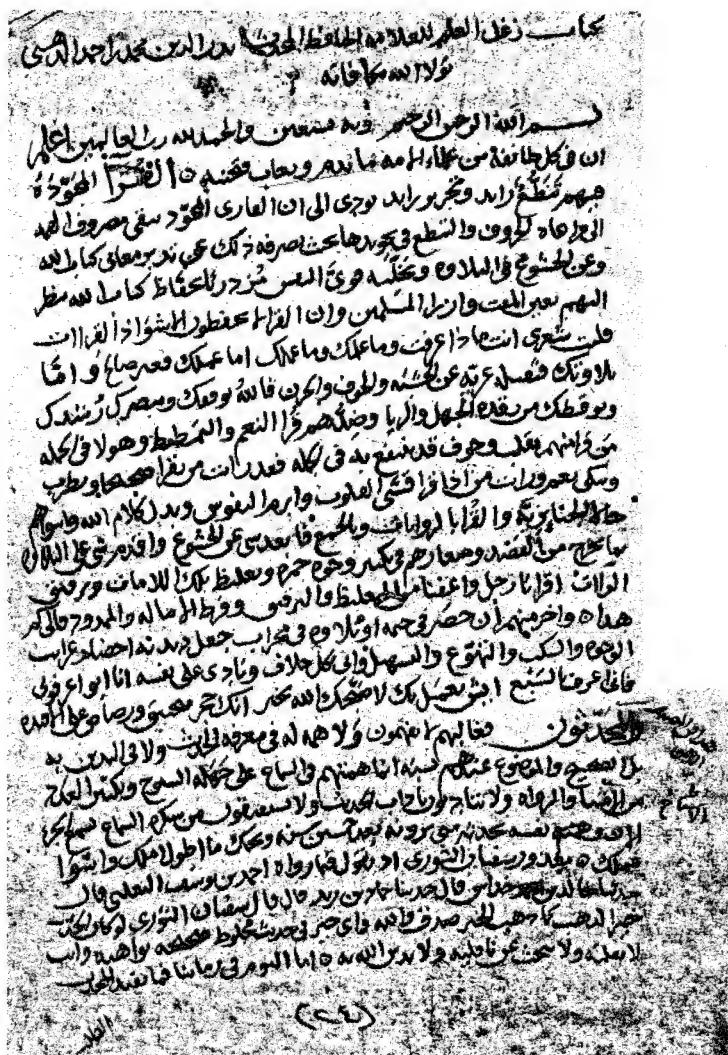 كتاب زغل العلم للعلامة الحافظ المحدث بدر الدين محمد بن احمد الذهبي
تولا الله مكافاته
بسم الله الرحمن الرحيم وبه نستعين والحمد لله رب العالمين اعلم
ان في كل طائفة من علماء الامه ما يذم ويعاب فتجنبه القرا المجوّدة
فيهم تنطّع زايد وتحرير زايد يودي الى ان القارى المجوّد يبقى مصروف الهمه
الى مراعاة الحروف والتنطع في تجويدها بحيث يصرفه ذلك عن تدبر معاني كتاب الله
وعن الخشوع في التلاوه ويخليه قوي النفس مُزدريا بحفاظ كتاب الله ينظر
اليهم بعين المقت وان المسلمين وان القرا لا يحفظون الا شواذ القراات
فليت شعري انت ماذا عرفت وما علمك وما عملك اما عملك فغير صالح واما
تلاوتك فثقيله عريّه عن الخشيه والخوف والحزن فالله يوفقك ويبصرك رشدك
ويوقظك من رقدة الجهل والريا وضدهم قرا النغم والتمطيط وهولا في الجمله
من قرا منهم بقلب وخوف قد ينتفع به في الجمله فقد رايت من يقرا صحيحا ويطرب
ويبكي نعم ورايت من اذا قرا قسّى القلوب وابرم النفوس وبدل كلام الله واسواهم
حالا الجنايزيّه والقرا بالروايات وبالجمع فابعد شي عن الخشوع واقدم شي على التلاوه
بما يخرج من القصد وشعارهم في تكثير وجوه حمزه وتغليظ تلك اللامات وترقيق
الراات اقرا يا رجل واعفنا من التغليظ والترقيق وفرط الاماله والمدود
هذا واخر منهم ان حضر في ختمه او تلاوه في محراب جعل ديدنه احضار غرايب
الوجوه والسكت والتهوع والتسهيل واتى بكل خلاف ونادى على نفسه انا ابو اعرفوني
فاني اعرف بالسبع ايش نعمل بك لا صبّحك الله بخير انك حجر منجنيق ورصاص على الافئده
والمحدثون فغالبهم لا يفهمون ولا همه له في معرفة الحديث ولا في التدين به
بل الصحيح والموضوع عندهم بنسبه انما همتهم في السماع على جهلة الشيوخ وتكثير العدد
من الاجزا والرواه ولا يتادبون باداب الحديث ولا يستفيقون من سكره السماع يسمع الجزء
ونفسه تحدثه متى يرويه بعد خمسين سنه ويحك ما اطول املك واسوا
عملك معذور سفيان الثوري اذ يقول فيما رواه احمد بن يوسف التغلبي قال
حدثنا خالد بن خداش قال حدثنا حماد بن زيد قال قال سفيان الثوري لو كان الحديث
خيرا لذهب كما ذهب الخير صدق والله واي خير في حديث مخلوط صحيحه بواهيه وانت
لا تفليه ولا تبحث عن ناقليه ولا تدين الله به اما اليوم في زماننا فما يفيد المحدث
(٢٤)